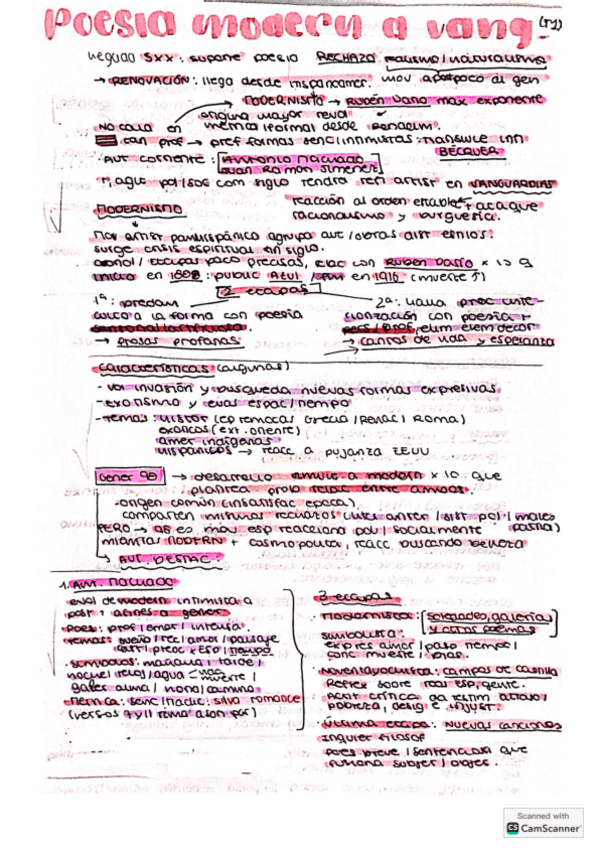 Poesía modern a vang. (T1)
llegada SXX: supone poesía RECHAZO realismo/naturalismo
→ RENOVACIÓN: llega desde hispanoamer. mov
MODERNISMO → Rubén Darío max exponente
origina mayor revol
No calla en métrica/formal desde Renacim.
can pref → pref formas senc/intimistas: transluce inn
BÉCQUER
Aut corriente: Antonio Machado
Juan Ramón Jiménez
algu países com siglo tendrá refl artist en VANGUARDIAS
reacción al orden establec + ataque
racionalismo y burguesía.
MODERNISMO
Mov artist panhispánico agrupa aut/obras dist estilos.
surge crisis espiritual fin siglo.
cronol/etapas poco precisas, coinc con Rubén Darío x lo q
inicio en 1888: public Azul / fin en 1916 (muerte)
2 etapas
1ª: predom
culto a la forma con poesía
→ prosas profanas
2ª: lleva proc inte-
riorización con poesía +
prof, elim elem decor
→ cantos de vida y esperanza
características (algunas)
- vol invasión y búsqueda nuevas formas expresivas
- exotismo y evas espac/tiempo
- temas: histor (ép remotas Grecia/Renac/Roma)
exóticas (ext. oriente)
amer indígenas
hispánicos → reacc a pujanza EEUU
Gener 98 → desarrollo simult a modern x lo que
plantea prob relac entre ambos.
- origen común (insatisfac época)
comparten mismos rechazos
PERO → 98 es mov esp reacciona pol/socialmente
mientras MODERN + cosmopolita, reacc buscando belleza
→ AUT. DESTAC.
1. Ant. Machado
evol de modern intimista a
post. afines a gener
poes: prof/emot/intensa.
temas: sueño/rec/amor/paisaje
cast/preoc esp/tiempo
símbolos: mañana/tarde/
noche/reloj/agua
muerte/
galer alma/noria/camino
métrica: senc/tradic: silva romance
(versos 7 y 11 rima ason par)
3 etapas
Modernista: Soledades, galerías
y otros poemas
simbolista.
expres amor/paso tiempo/
conc muerte/
Noventayochista: campos de castilla
Reflex sobre real esp, gente.
Acut crítica da testim atraso/
pobreza, desig e injust.
Última etapa: nuevas canciones
inquiet filosóf
poes breve/sentenciosa que
subjet/objet.
Scanned with
CS CamScanner